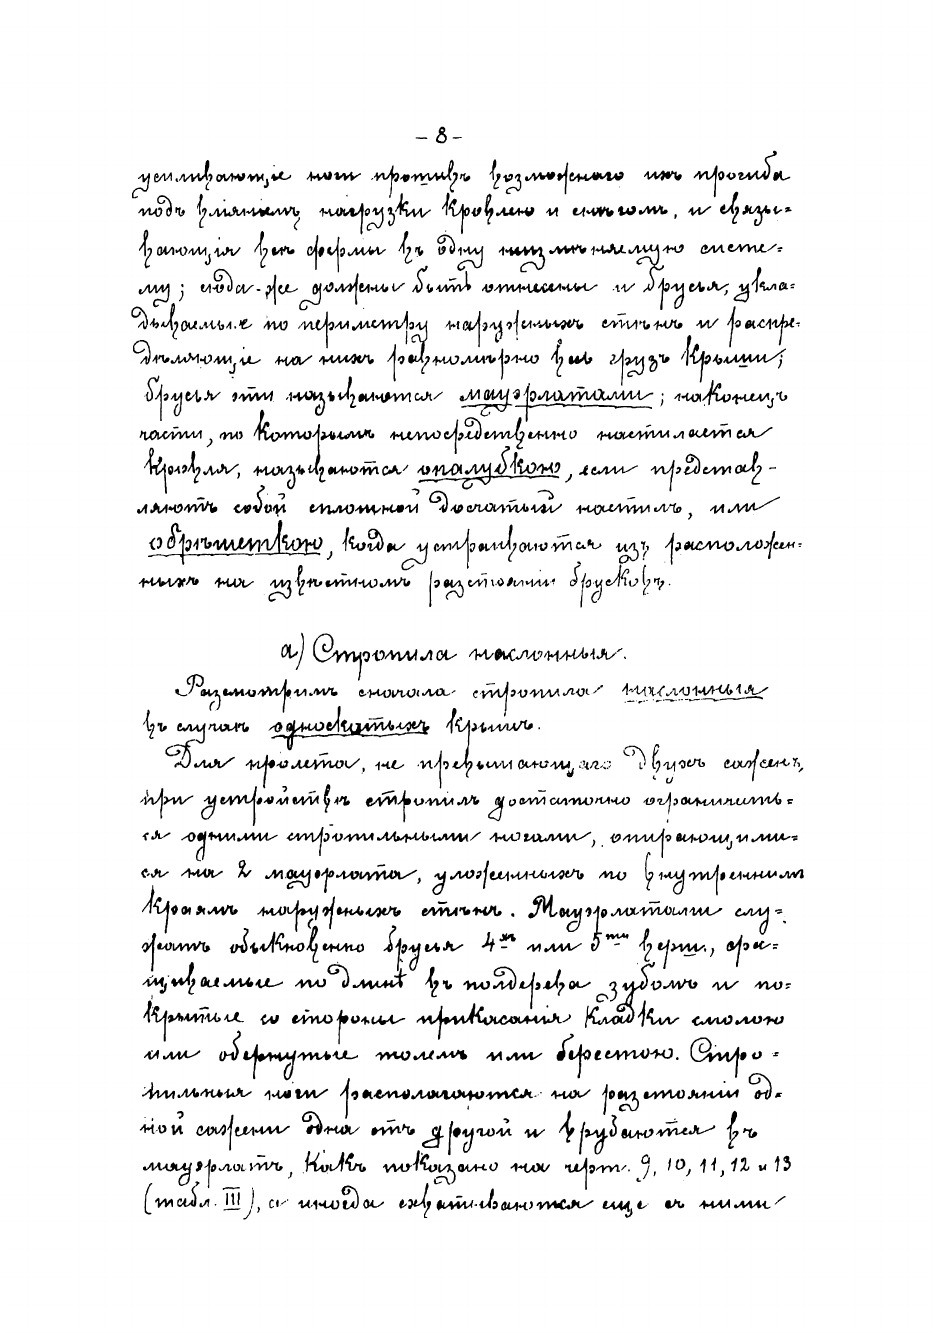 – 8 –
усиливающіе ноги противъ возможнаго ихъ прогиба
подъ вліяніемъ нагрузки кровлею и снѣгомъ, и связы=
вающія всѣ фермы въ одну неизмѣняемую систе=
му; сюда-же должены быть отнесены и брусья, укла=
дываемые по периметру наружныхъ стѣнъ и распре=
дѣляющіе на нихъ равномѣрно весь грузъ крыши;
брусья эти называются мауэрлатами; наконецъ
части, по которымъ непосредственно настилается
кровля, называются опалубкою, если представ-
ляютъ собой сплошной досчатый настилъ, или
обрѣшеткою, когда устраиваются изъ расположен=
ныхъ на извѣстномъ разстояніи брусковъ.
а) Стропила наслонныя.
Разсмотримъ сначала стропила наслонныя
въ случаѣ односкатыхъ крышъ.
Для пролета, не превышающаго двухъ саженъ,
при устройствѣ стропилъ достаточно ограничить=
ся одними стропильными ногами, опирающими=
ся на 2 мауэрлата, уложенныхъ по внутреннимъ
краямъ наружныхъ стѣнъ. Мауэрлатами слу=
жатъ обыкновенно брусья 4хъ или 5ти верш., сра=
щиваемые по длинѣ въ полдерева зубомъ и по=
крытые со стороны прикасанія кладки смолою
или обернутые толемъ или берестою. Стро=
пильныя ноги располагаются на разстояніи од=
ной сажени одна отъ другой и врубаются въ
мауэрлатъ, какъ показано на черт. 9, 10, 11, 12 и 13
(табл. III), а иногда схватываются еще съ ними